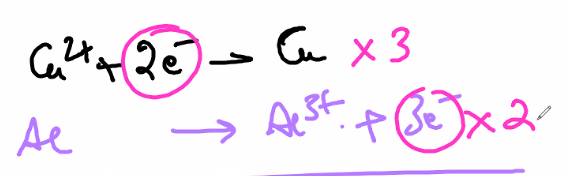 Cu²⁺ + 2e⁻ → Cu × 3
Al → Al³⁺ + 3e⁻ × 2